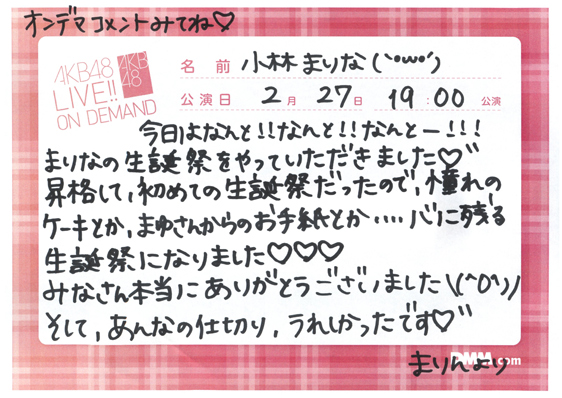 オンデマコメントみてね♡
AKB48
LIVE!!
ON DEMAND
AKB
48
名前 小林まりな(`･ω･´)
公演日 2月 27日 19:00 公演
今日はなんと!!なんと!!なんとー!!!
まりなの生誕祭をやっていただきました♡"
昇格して,初めての生誕祭だったので,憧れの
ケーキとか,まゆさんからのお手紙とか‥‥心に残る
生誕祭になりました♡♡♡
みなさん本当にありがとうございました\\(^O^)/
そして,あんなの仕切り,うれしかったです♡"
まりんより
DMM.com